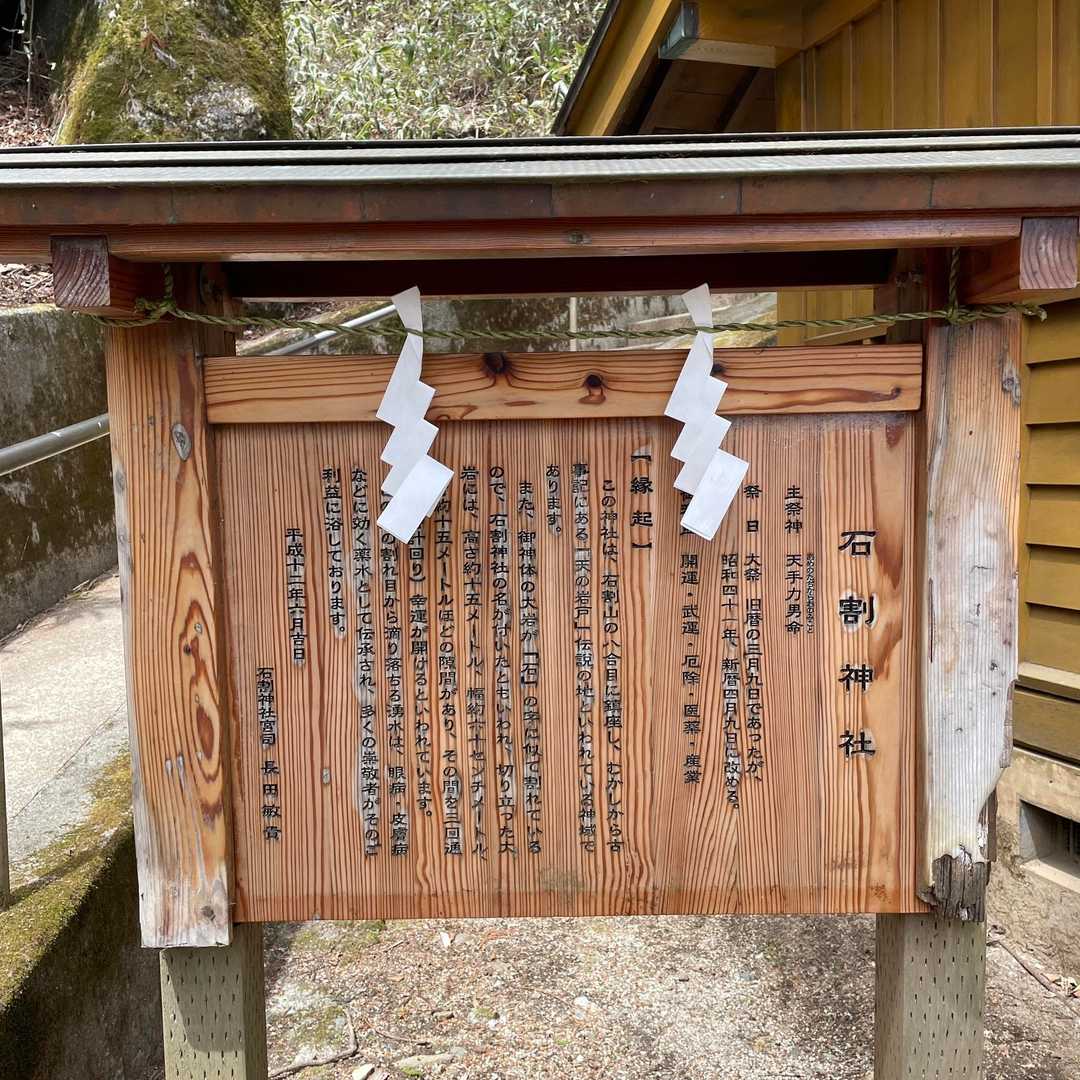 石割神社
主祭神 天手力男命
あめのたぢからをのみこと
祭日 大祭 旧暦の三月九日であったが、
昭和四十一年、新暦四月九日に改める。
開運・武運・厄除・医薬・産業
【縁起】
この神社は、石割山の八合目に鎮座し、むかしから古
事記にある「天の岩戸」伝説の地といわれている神域で
あります。
また、御神体の大岩が「石」の字に似て割れている
ので、石割神社の名が付いたともいわれ、切り立った大
岩には、高さ約十五メートル、幅約六十センチメートル、
約十五メートルほどの隙間があり、その間を三回通
計回り）幸運が開けるといわれています。
の割れ目から滴り落ちる湧水は、眼病・皮膚病
などに効く薬水として伝承され、多くの崇敬者がそのご
利益に浴しております。
平成十二年六月吉日
石割神社宮司 長田敏貴